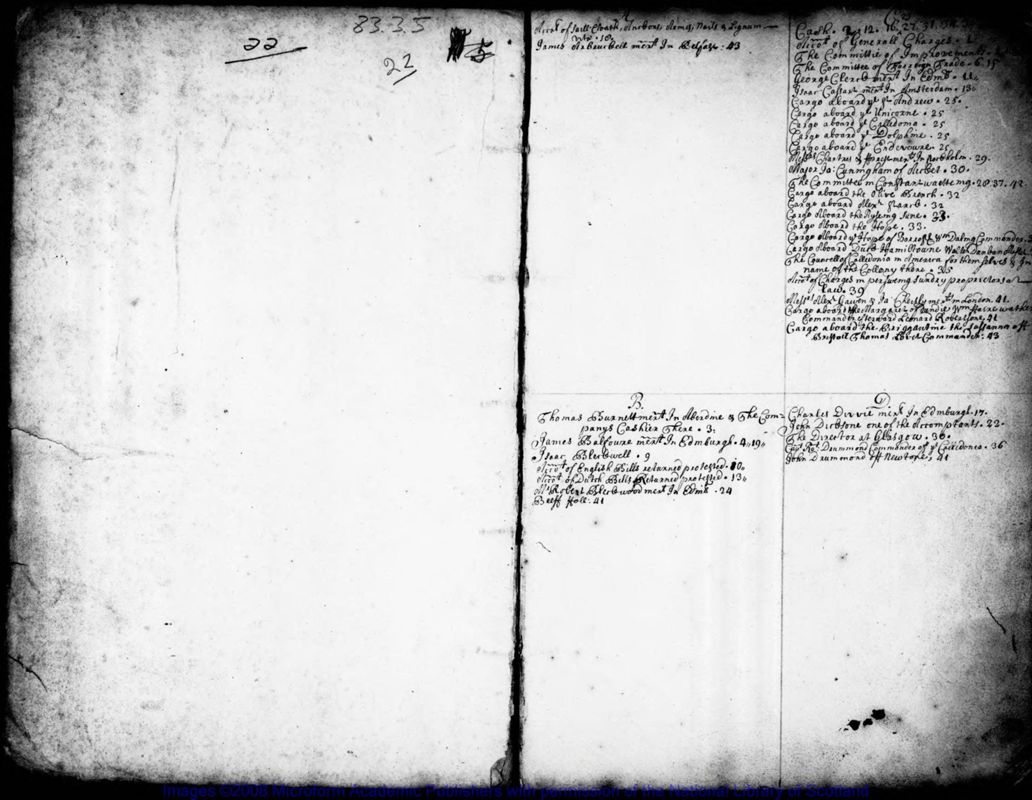 83.3.5
22
22
5
Accot of Saill Cloath, Anchors, Hemp, Nails & Lignum
vite . 16.
James Arbuckell mert In Belfast . 43
B.
Thomas Burnett mert In Aberdine & The Com-
panys Cashier There . 3.
James Balfoure mert In Edinburgh . 4. 19.
Isaac Blackwell . 9
Accot of English Bills returned protested . 10.
Accot of Dutch Bills Returned protested . 13.
Mr Robert Blackwood mert In Edinb . 24
Beeff 41
C
Cash . 12. 16. 22. 31.
Accot of Generall Charges .
The Committie of Improvements .
The Committee of Foreign Trade . 6. 15
George Clerck mert In Edinb . 11.
Isaac Cassart mert In Amsterdam . 13.
Cargo aboard ye St Andrew . 25.
Cargo aboard ye Unicorne . 25
Cargo aboard ye Calledonia . 25
Cargo aboard ye Dolphine . 25
Cargo aboard ye Endevoure . 25
Messrs Chartres & mert In Stockholm . 29.
Major Ja: Cuningham of . 30.
The Committee in Constant waiteing . 28. 37. 42
Cargo aboard the Olive Branch . 32
Cargo aboard Alexr . 32
Cargo Aboard the Ryseing Sune . 33.
Cargo Aboard the Hope . 33.
Cargo Aboard ye Hope of Wm Commander
Cargo Aboard Duke Hamiltowne Walter Duncan
The Councell of Calledonia in America for themselves & In
name of the Collony there . 35
Accot of Charges in persueing sundry propriectors at
Law . 39
Messrs Alexr Gawen & Ja: mert In London . 41.
Cargo aboard the Margaret of Dundie Wm
Commander Leonard Robertson . 41
Cargo aboard the Briggantine the Sussanna off
Bristoll Thomas Commander . 43
D
Charles Dirvie mert In Edinburgh . 17.
John Dickson one of the Accomptants . 22.
The Director at Glasgow . 36.
Cap Rot Drummond Commander of ye Calledonia . 36
John Drummond off Newtone . 41
Images ©2008 Microform Academic Publishers with permission of the National Library of Scotland